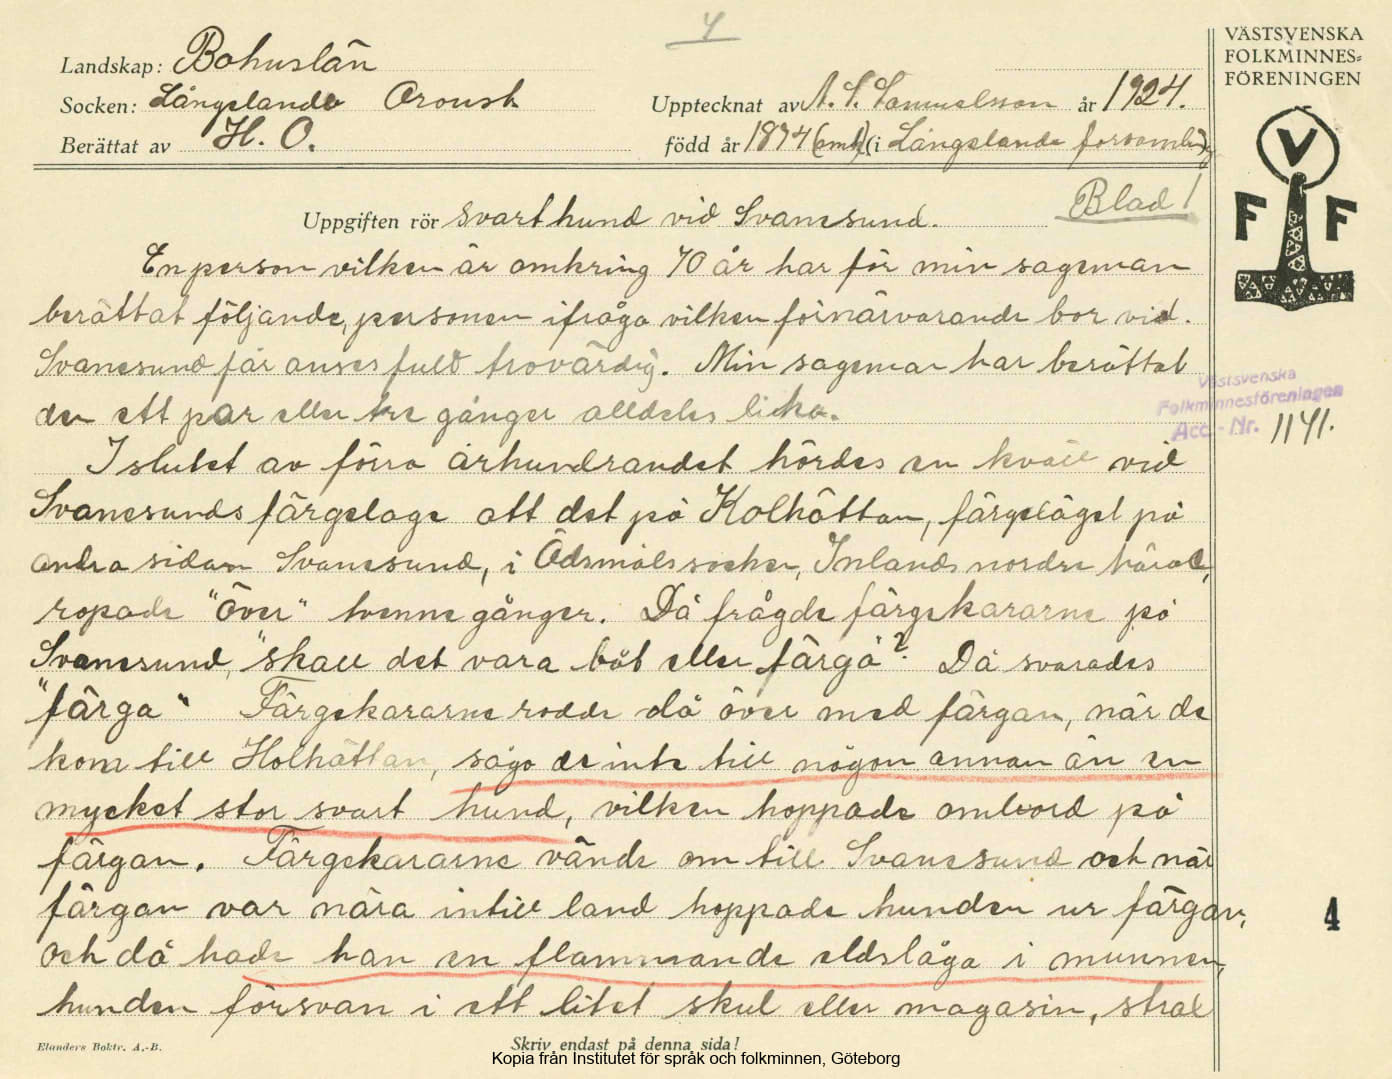 4
VÄSTSVENSKA
FOLKMINNES=
FÖRENINGEN
Landskap: Bohuslän
Socken: Långelanda Oroust
Upptecknat av A. S. Samuelsson år 1924.
Berättat av H. O.
född år 1874 (omk) (i Långelanda forsamling
V
F F
Blad 1
Uppgiften rör Svart hund vid Svanesund.
En person vilken är omkring 70 år har för min sageman
berättat följande, personen ifråga vilken förnärvarande bor vid
Svanesund får anses fult trovärdig. Min sageman har berättat
den ett par eller tre gånger alldeles lika.
Västsvenska
Folkminnesföreningen
Acc.-Nr. 1141.
I slutet av förra århundradet hördes en kväll vid
Svanesunds färgelage att det på Kolhättan, färgeläget på
andra sidan Svanesund, i Ödsmåls socken, Inlands nordre härad,
ropade "över" tvenne gånger. Då frågde färgekararne på
Svanesund, "skall det vara båt eller färga"? Då svarades
"färga" Färgekararne rodde då över med färgan, när de
kom till Holhättan, sågo de inte till någon annan än en
mycket stor svart hund, vilken hoppade ombord på
färgan. Färgekararne vände om till Svanesund och när
färgan var nära intill land hoppade hunden ur färgan,
och då hade han en flammande eldslåga i munnen,
hunden försvan i ett litet skul eller magasin, stral
4
Elanders Boktr. A.-B.
Skriv endast på denna sida!
Kopia från Institutet för språk och folkminnen, Göteborg